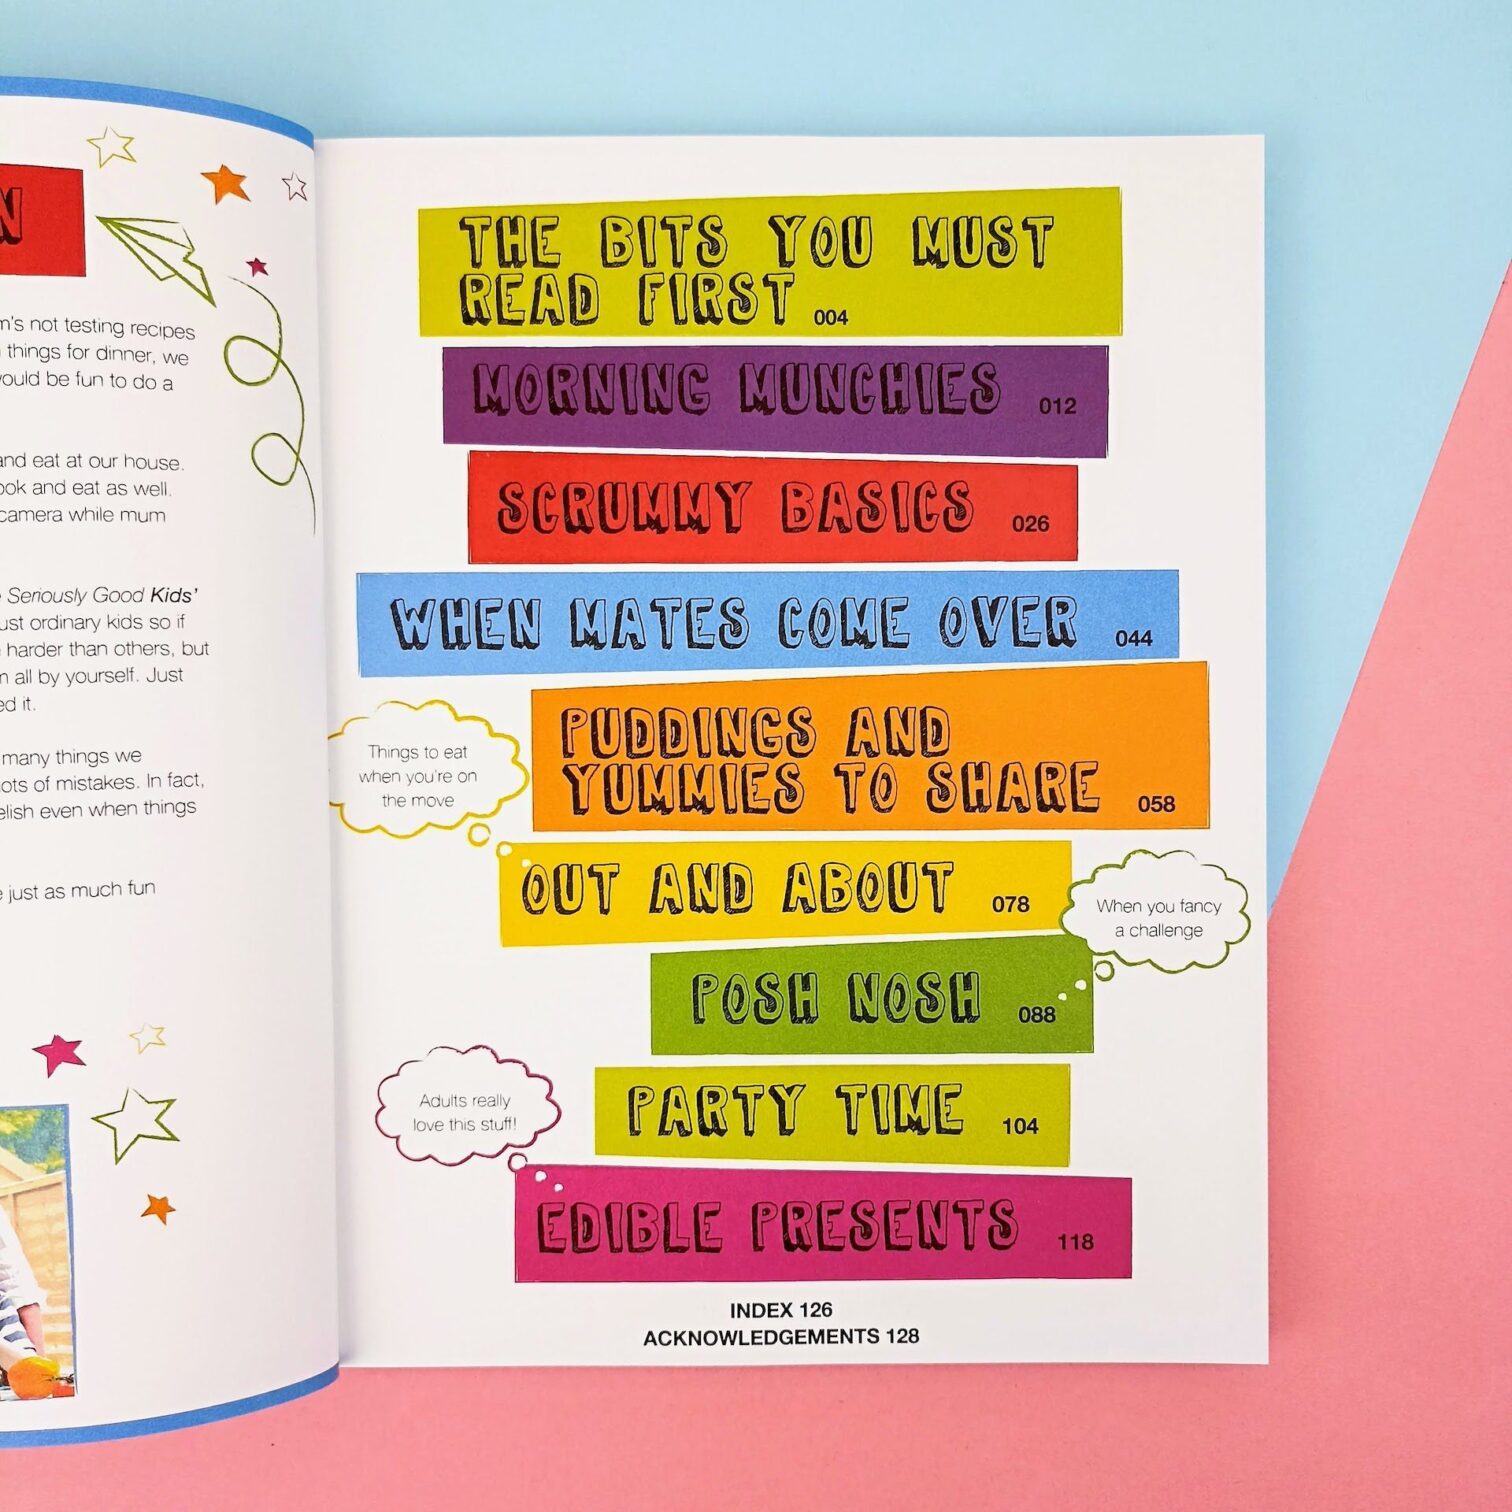 N
m's not testing recipes
things for dinner, we
ould be fun to do a
and eat at our house.
ook and eat as well.
camera while mum
Seriously Good Kids'
ust ordinary kids so if
harder than others, but
all by yourself. Just
ed it.
many things we
ots of mistakes. In fact,
elish even when things
just as much fun
THE BITS YOU MUST
READ FIRST 004
MORNING MUNCHIES 012
SCRUMMY BASICS 026
WHEN MATES COME OVER 044
PUDDINGS AND
YUMMIES TO SHARE 058
Things to eat
when you're on
the move
OUT AND ABOUT 078
When you fancy
a challenge
POSH NOSH 088
PARTY TIME 104
Adults really
love this stuff!
EDIBLE PRESENTS 118
INDEX 126
ACKNOWLEDGEMENTS 128